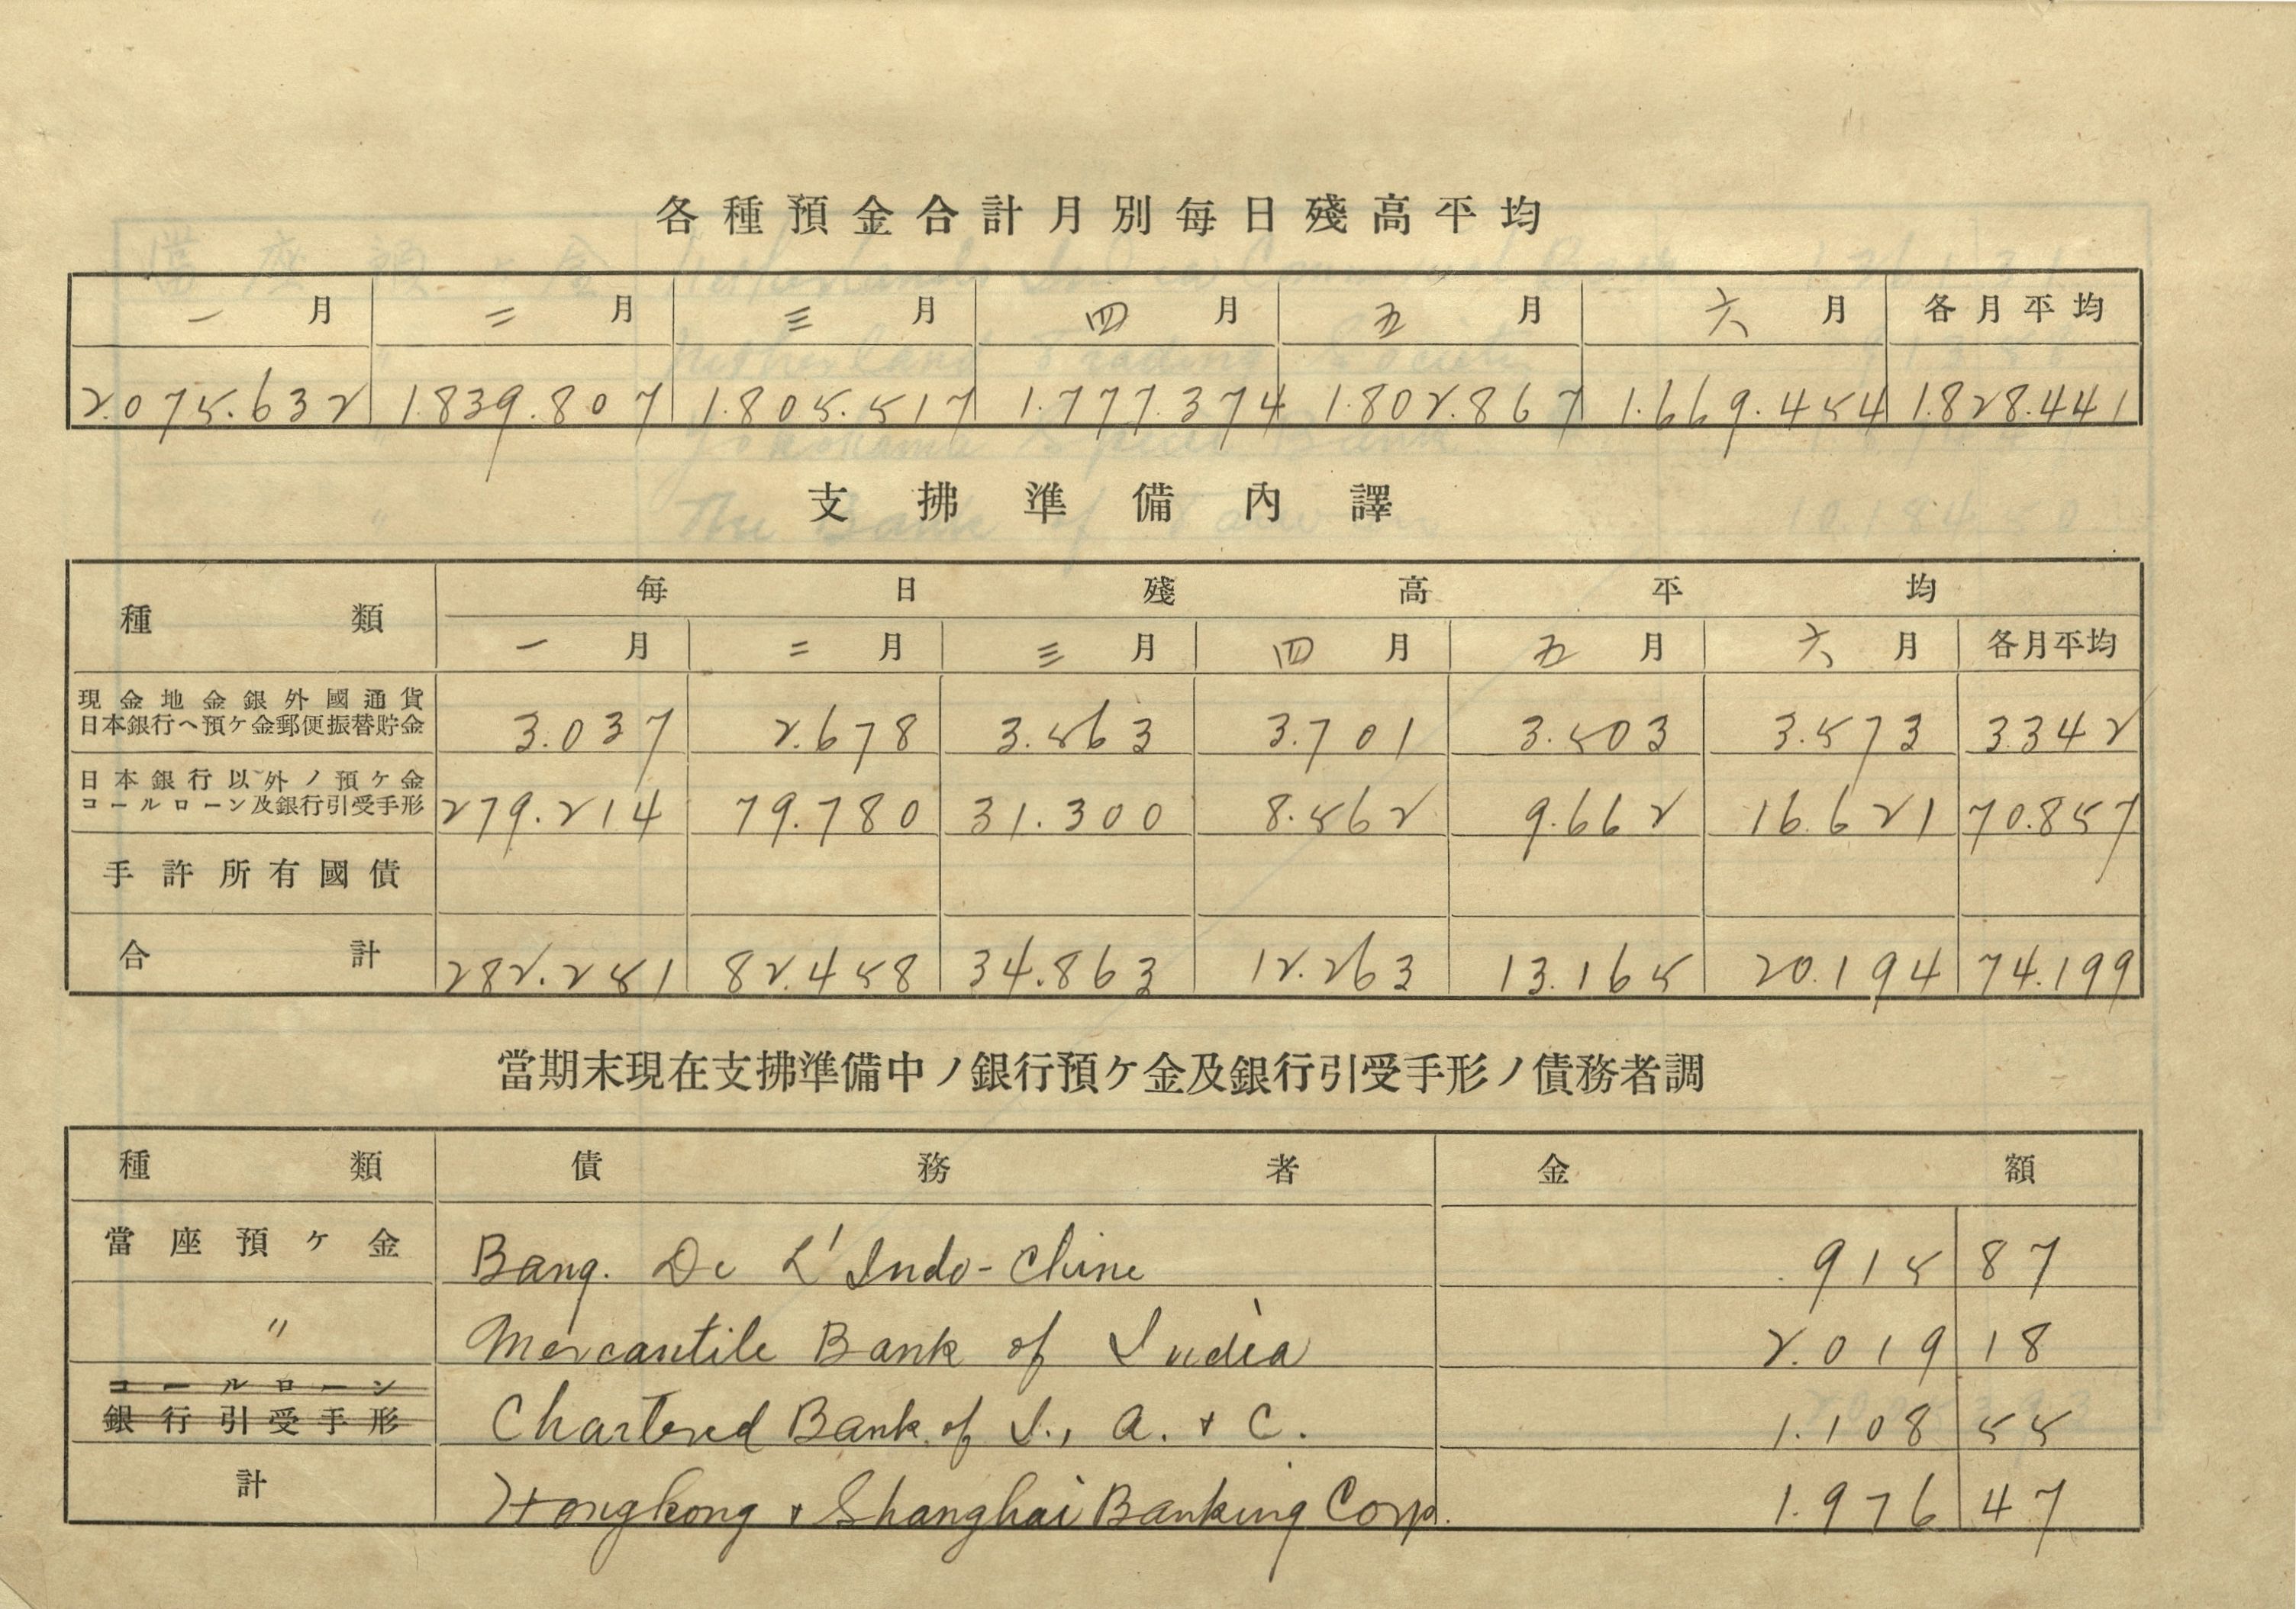 各種預金合計月別每日殘高平均
一月 二月 三月 四月 五月 六月 各月平均
2.075.632 1.839.807 1.805.517 1.777.374 1.802.867 1.669.454 1.828.441
支拂準備內譯
種類 每日殘高平均
一月 二月 三月 四月 五月 六月 各月平均
現金地金銀外國通貨
日本銀行ヘ預ケ金郵便振替貯金 3.037 2.678 3.563 3.701 3.503 3.573 3.342
日本銀行以外ノ預ケ金
コールローン及銀行引受手形 279.214 79.780 31.300 8.562 9.662 16.621 70.857
手許所有國債
合計 282.251 82.458 34.863 12.263 13.165 20.194 74.199
當期末現在支拂準備中ノ銀行預ケ金及銀行引受手形ノ債務者調
種類 債務者 金額
當座預ケ金 Banq. De L'Indo-Chine 915 87
〃 Mercantile Bank of India 2.019 18
コールローン
銀行引受手形 Chartered Bank of I., A. & C. 1.108 55
計 Hongkong & Shanghai Banking Corp. 1.976 47